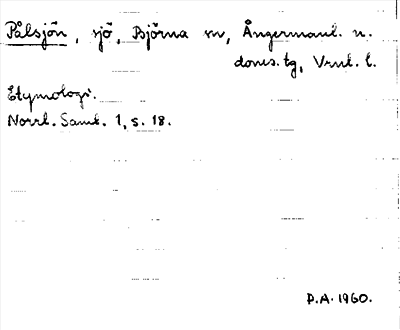 Pålsjön, sjö, Björna sn, Ångermanl. n.
doms.tg, Vrnl. l.
Etymologi.
Norrl. Saml. 1, s. 18.
P.A. 1960.